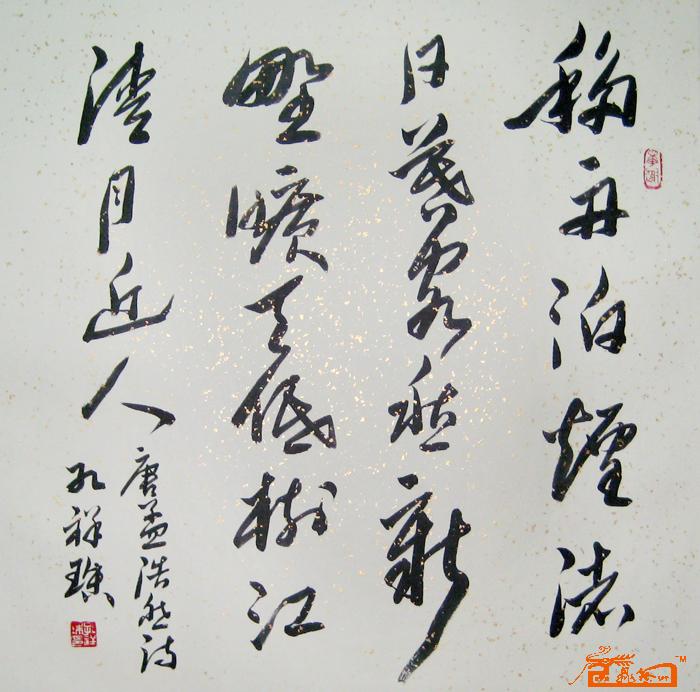 移舟泊煙渚
日暮客愁新
野曠天低樹江
清月近人
唐孟浩然詩
孔祥
TM